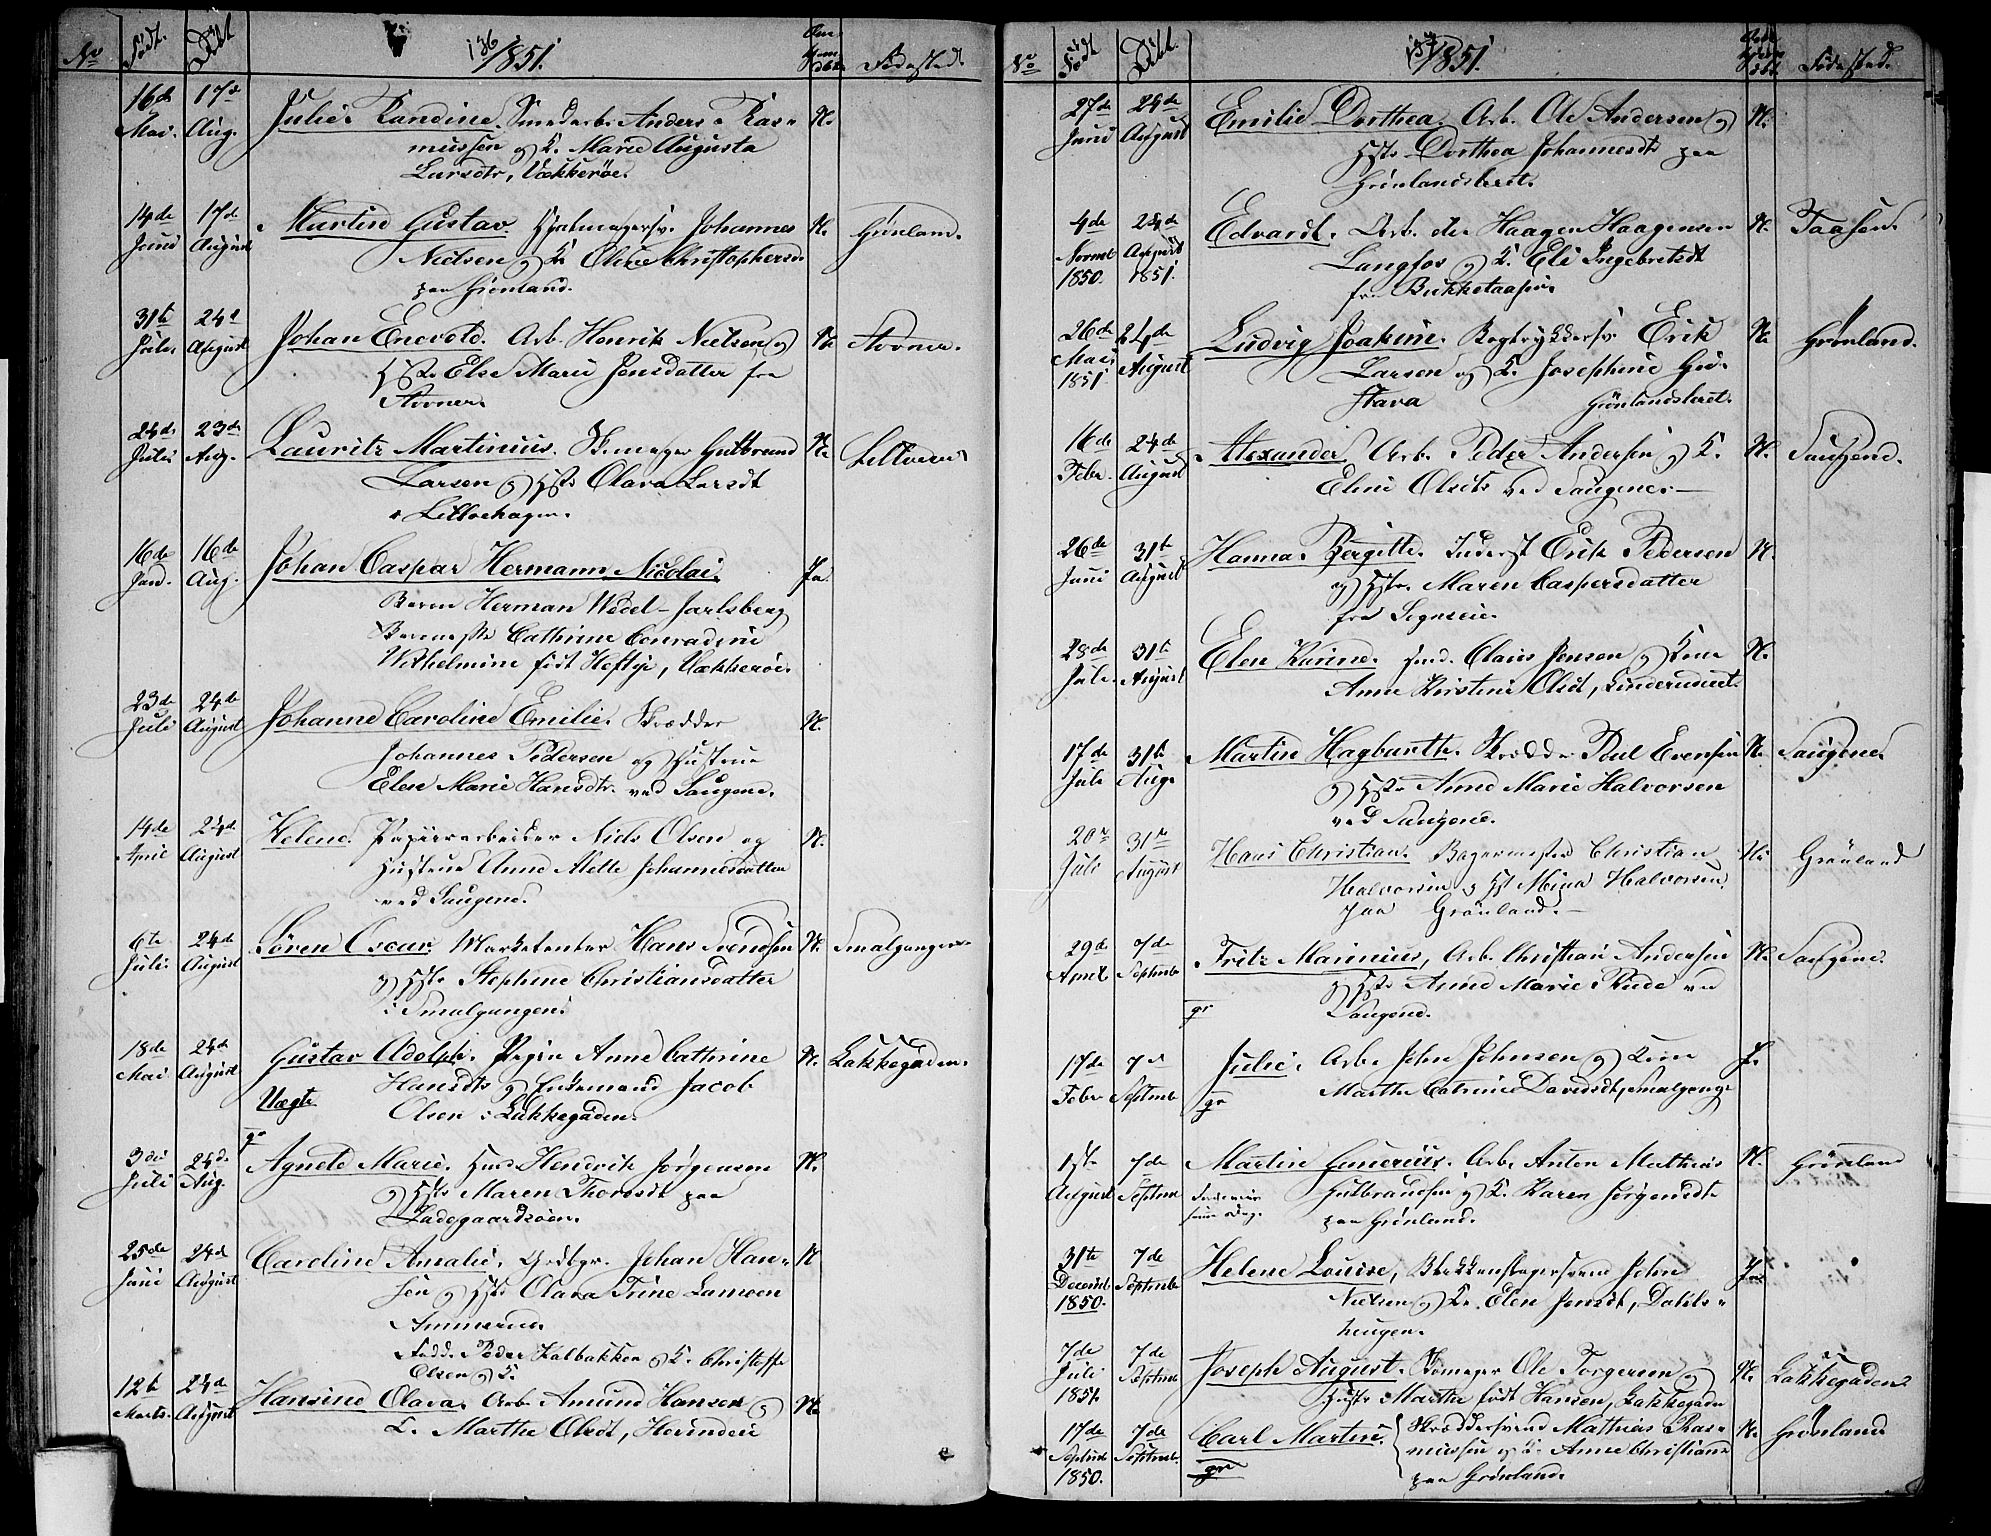 136
1851.
No
Født.
Døbt
Fødested.
16de
Mai.
17de
Aug.
Julie Randine. Smedarb. Anders Ras-
mussen og K. Marie Augusta
Larsdtr, Vækkerøe.
N.
14de
Juni
17de
August
Martin Gustav. Johannes
Nielsen og K. Oline Christophersd.
paa Grønland.
N.
Grønland.
31te
Juli.
24de
August
Johan Enevold. Arb. Henrik Nielsen og
Hstr. Else Marie Jensdatter fra
Stovner.
N.
Stovner.
24de
Juli
23de
Aug.
Lauritz Martinius. Gulbrand
Larsen og Hstr. Olava Larsdt
Lillohagen.
N.
16de
Jan.
16de
Aug.
Johan Caspar Hermann Nicolai.
Baron Herman Wedel-Jarlsberg
Cathrine Conradine
Wilhelmine født Heftye, Vækkerøe.
Ja.
23de
Juli
24de
August
Johanne Caroline Emilie. Skrædder
Johannes Pedersen og Hustrue
Elen Marie Hansdtr. ved Saugene.
N.
14de
April
24de
August
Helene. Papiirarbeider Niels Olsen og
Hustrue Anne Mette Johannesdatter
ved Saugene.
N.
6te
Juli.
24de
August
Søren Oscar. Marketenter Hans Svendsen
og Hstr. Stephine Christiansdatter
i Smalgangen.
N.
Smalgangen.
18de
Mai
24de
August
Gustav Adolph. Pigen Anne Cathrine
Hansdtr og Enkemand Jacob
Olsen i Lakkegaden.
Uægte
N.
Lakkegaden.
3die
Juli
24de
Aug.
Agnete Marie. Hendrik Jørgensen
og Hstr. Maren Thorsdt paa
Ladegaardsøen.
N.
25de
Juni
24de
August
Caroline Amalie. Johan Han-
sen og Hstr. Olava Trine Larsen
Ammerud.
Peder Kalbakken og K. Christoffer
Olsen og K.
N
12te
Marts.
24de
August
Hansine Olava. Arb. Amund Hansen og
K. Marthe Olsdt, Hovinden
N.
137
1851.
No
Født
Døbt.
Fødested.
27de
Juni
24de
August
Emilie Dorthea. Arb. Ole Andersen og
Hstr. Dorthea Johannesdtr paa
Grønlandsleret.
N.
4de
Novmb
1850.
24de
August
1851.
Edvardt. Haagen Haagensen
Langfos og K. Eli Ingebretsdt
fra Bakketaasen.
N.
Taasen.
26de
Mai
1851.
24de
August
Ludvig Joakim. Bogtrykkersv. Erik
Larsen og K. Josephine Gu-
stava Grønlandsleret.
N.
Grønland.
16de
Febr.
24de
August
Alexander. Arb. Peder Andersen og K.
Eline Olsdtr ved Saugene.
N.
Saugene.
26de
Juni
31te
August
Hanna Bergitte. Inderst Erik Pedersen
og Hstr. Maren Caspersdatter
fra
N.
28de
Juli.
31te
August
Elen Karine. Claus Jensen og Kone
Anne Kirstine Olsdt,
N.
17de
Juli
31te
Aug.
Martin Hagbarth. Skrædder Poul Evensen
og Hstr. Anne Marie Halvorsen
ved Saugene.
N.
Saugene.
20de
Juli
31te
August
Hans Christian. Bagermester Christian
Halvorsen og Hst Mina Halvorsen
paa Grønland.
N.
Grønland
29de
April
7de
Septmb
Fritz Marinius, Arb. Christian Andersen
og Hstr. Anne Marie Rude ved
Saugene.
N.
Saugene.
17de
Febr
7de
Septmb
Julie. Arb. John Johnsen og Kone
Marthe Catrine Davidsdt, Smalgang
J.
1ste
August
7de
Septmb
Martin Gunerius. Arb. Anton Mathias
Gulbrandsen og K. Karen Jørgensdt
paa Grønland.
N.
Grønland
31te
Decemb.
1850.
7de
Septmb
Helene Louise, Blikkenslagersvend John
Nielsen og K. Elen Jensdt, Dahls-
hougen.
Ja
7de
Juli
1851.
7de
Septmb
Joseph August. Skomager Ole Torgersen og
Hustr. Marthe født Hansen, Lakkegaden
N.
Lakkegaden
17de
Septmb
1850.
7de
Septmb.
Carl Martin. Skræddersvend Mathias Ras-
mussen og K. Anne Christians
paa Grønland.
N.
Grønland